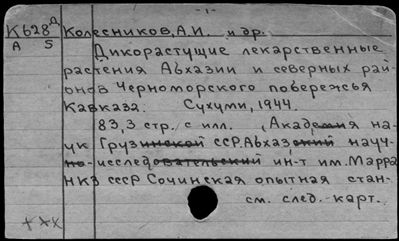 - 1 -
К628 Д Колесников, А.И. и др.
А 5
Дикорастущие лекарственные
растения Абхазии и северных рай-
онов Черноморского побережья
Кавказа. Сухуми, 1944.
83,3 стр. с илл. (Академия на-
ук Грузинской ССР. Абхазский науч-
но-исследовательский ин-т им. Марра
НКЗ СССР Сочинская опытная стан-
см. след. карт.
+ хх